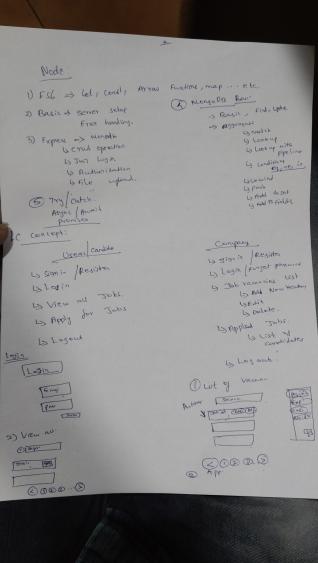 Node
1) ES6 => let, const, Arrow Function, map ... etc
2) Basic => Server setup
Error handling.
3) Express => MongoDB
↳ Crud operation
↳ Jwt Login
↳ Authentication
↳ File upload.
4) MongoDB
→ Basic, Find, Update
→ Aggregate
↳ Match
↳ Lookup
↳ Lookup with pipeline
↳ Conditions
↳ Unwind
↳ Push
↳ Add to set
↳ Add fields
5) Try/Catch.
Async/Await
promises
Concept:
Users/Candidate
↳ Sign in / Register
↳ Login
↳ View all Jobs.
↳ Apply for Jobs
↳ Logout
Company
↳ Sign in / Register
↳ Login / Forgot password
↳ Job vacancies List
↳ Add New
↳ Edit
↳ Delete.
↳ Applied Jobs.
↳ List of candidates
↳ Log out.
Login
Login
Email
1) List of Vacan
Search
Action
2) View all
< 1 2 3 ... >
< 1 2 3 >